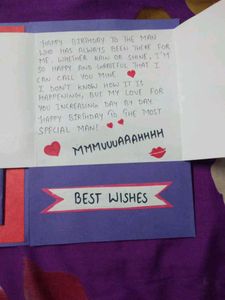 HAPPY BIRTHDAY TO THE MAN
WHO HAS ALWAYS BEEN THERE FOR
ME, WHETHER RAIN OR SHINE, I'M
SO HAPPY AND GRATEFUL THAT I
CAN CALL YOU MINE
I DON'T KNOW HOW IT IS
HAPPENING, BUT MY LOVE FOR
YOU INCREASING DAY BY DAY.
HAPPY BIRTHDAY TO THE MOST
SPECIAL MAN!
MMMUUUAAAHHHH
BEST WISHES